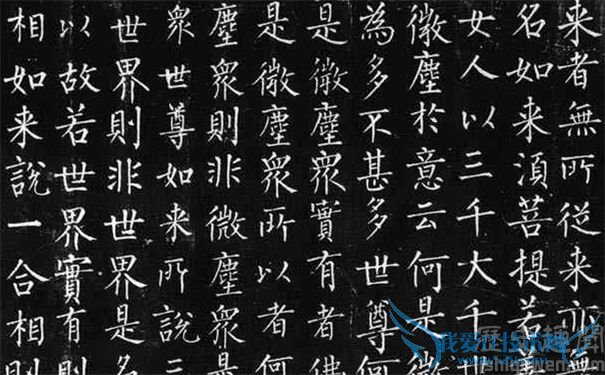 来者無所從来亦無
名如来須菩提若善
女人以三千大千世
微塵於意云何是微
為多不甚多世尊何
是微塵眾實有者佛
是微塵眾所以者何
塵眾則非微塵眾是
眾世尊如来所說三
世界則非世界是名
以故若世界實有則
相如来說一合相則